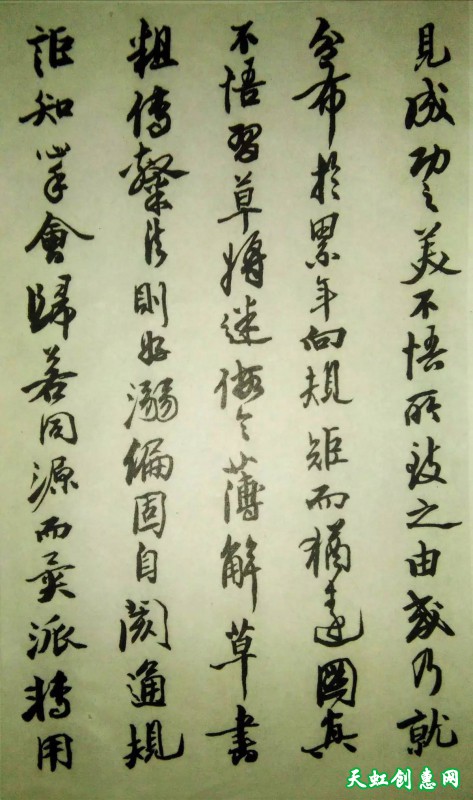 見成功之美不悟所致之由或乃就
分布於累年向規矩而猶遠圖真
不悟習草將迷假令薄解草書
粗傳隸法則好溺偏固自閡通規
詎知心手會歸若同源而異派轉用
天虹创惠网